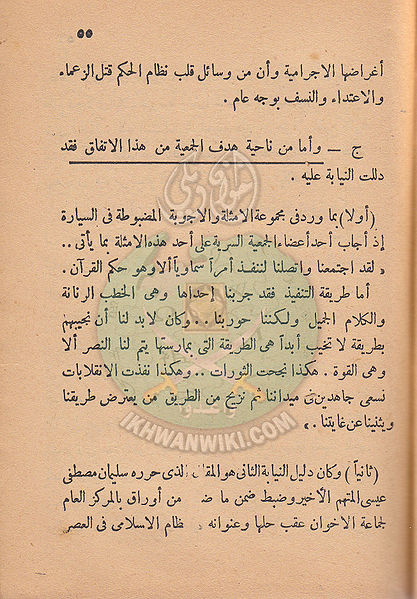 ٥٥
أغراضها الاجرامية وأن من وسائل قلب نظام الحكم قتل الزعماء
والاعتداء والنسف بوجه عام .
ج — وأما من ناحية هدف الجمعية من هذا الاتفاق فقد
دللت النيابة عليه .
(أولا) بما ورد فى مجموعة الامثلة والاجوبة المضبوطة فى السيارة
إذ أجاب أحد أعضاء الجمعية السرية على أحد هذه الامثلة بما يأتى ..
« لقد اجتمعنا واتصلنا لننفذ أمراً سماوياً ألا وهو حكم القرآن .
أما طريقة التنفيذ فقد جربنا إحداها وهى الخطب الرنانة
والكلام الجميل ولكننا حوربنا .. وكان لابد لنا أن نجيبهم
بطريقة لا تخيب أبداً هى الطريقة التى بمارستها يتم لنا النصر ألا
وهى القوة . هكذا نجحت الثورات .. وهكذا نفذت الانقلابات
نسعى جاهدين فى ميداننا ثم نزيح من الطريق من يعترض طريقنا
ويثنينا عن غايتنا . »
(ثانياً) وكان دليل النيابة الثانى هو المقال الذى حرره سليمان مصطفى
عيسى المتهم الأخير وضبط ضمن ما من أوراق بالمركز العام
لجماعة الاخوان عقب حلها وعنوانه نظام الاسلامى فى العصر
موسوعة
إخوان ويكي
وأعدوا
IKHWANWIKI.COM